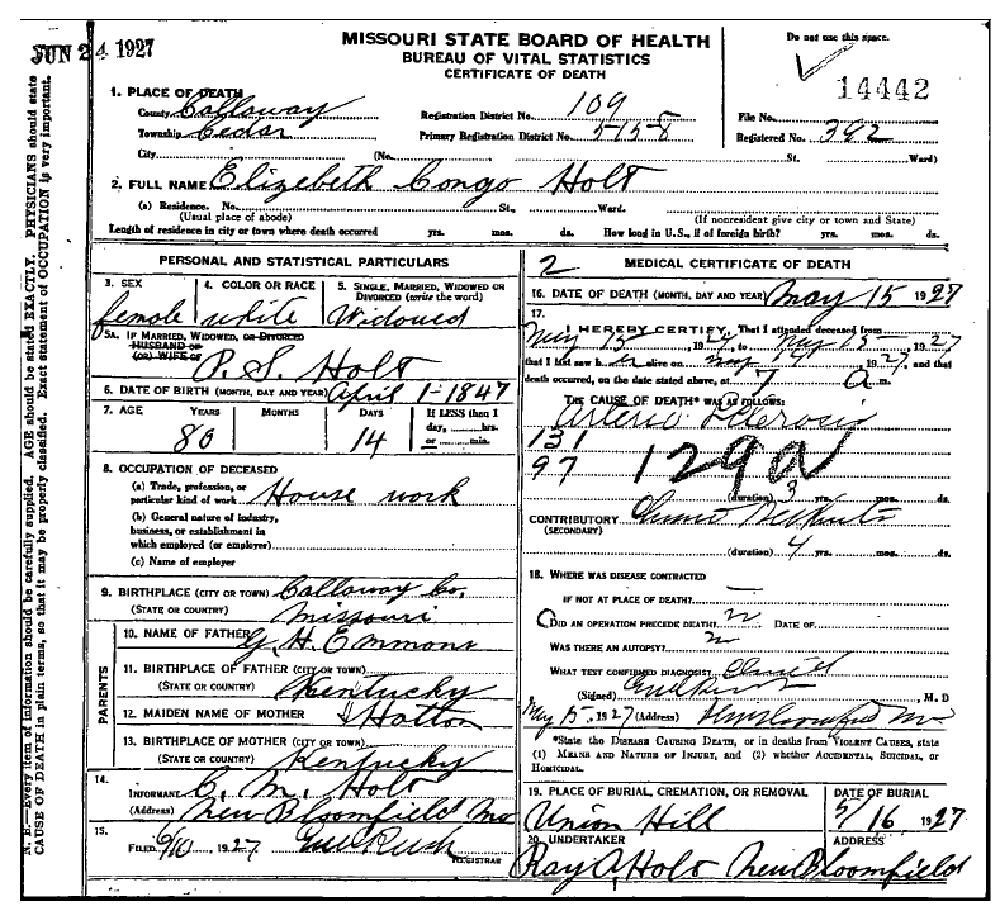 JUN 24 1927
MISSOURI STATE BOARD OF HEALTH
BUREAU OF VITAL STATISTICS
CERTIFICATE OF DEATH
Do not use this space.
14442
1. PLACE OF DEATH
County Callaway
Township Cedar
City (No. St. Ward)
Registration District No. 109
Primary Registration District No. 5158
File No.
Registered No. 392
2. FULL NAME Elizebeth Congo Holt
(a) Residence. No. St., Ward.
(Usual place of abode) (If nonresident give city or town and State)
Length of residence in city or town where death occurred yrs. mos. ds. How long in U.S., if of foreign birth? yrs. mos. ds.
PERSONAL AND STATISTICAL PARTICULARS
3. SEX female
4. COLOR OR RACE white
5. SINGLE, MARRIED, WIDOWED OR
DIVORCED (write the word)
Widowed
5A. IF MARRIED, WIDOWED, OR DIVORCED
HUSBAND OF
(OR) WIFE OF P. S. Holt
6. DATE OF BIRTH (MONTH, DAY AND YEAR) April 1-1847
7. AGE YEARS MONTHS DAYS If LESS than 1
day, hrs.
or min.
80 14
8. OCCUPATION OF DECEASED
(a) Trade, profession, or
particular kind of work House work
(b) General nature of industry,
business, or establishment in
which employed (or employer)
(c) Name of employer
9. BIRTHPLACE (CITY OR TOWN) Callaway Co.
(STATE OR COUNTRY) Missouri
PARENTS
10. NAME OF FATHER G. H. Emmons
11. BIRTHPLACE OF FATHER (CITY OR TOWN)
(STATE OR COUNTRY) Kentucky
12. MAIDEN NAME OF MOTHER Hatton
13. BIRTHPLACE OF MOTHER (CITY OR TOWN)
(STATE OR COUNTRY) Kentucky
14.
INFORMANT C. M. Holt
(Address) New Bloomfield Mo
15.
FILED 6/10 1927 Rush
REGISTRAR
2 MEDICAL CERTIFICATE OF DEATH
16. DATE OF DEATH (MONTH, DAY AND YEAR) May 15 1927
17.
I HEREBY CERTIFY, That I attended deceased from
May 15 1924 to May 15 1927
that I last saw her alive on May 14 1927, and that
death occurred, on the date stated above, at 7 a m.
THE CAUSE OF DEATH* WAS AS FOLLOWS:
Arterio Sclerosis
131
97 129a
(duration) 3 yrs. mos. ds.
CONTRIBUTORY
(SECONDARY)
(duration) 4 yrs. mos. ds.
18. WHERE WAS DISEASE CONTRACTED
IF NOT AT PLACE OF DEATH? —
DID AN OPERATION PRECEDE DEATH? DATE OF
WAS THERE AN AUTOPSY?
WHAT TEST CONFIRMED DIAGNOSIS?
(Signed) M. D
May 15, 1927 (Address) New Bloomfield Mo
*State the DISEASE CAUSING DEATH, or in deaths from VIOLENT CAUSES, state
(1) MEANS AND NATURE OF INJURY, and (2) whether ACCIDENTAL, SUICIDAL, or
HOMICIDAL.
19. PLACE OF BURIAL, CREMATION, OR REMOVAL DATE OF BURIAL
Union Hill 5/16 1927
20. UNDERTAKER ADDRESS
Ray A. Holt New Bloomfield
N. B.—Every item of information should be carefully supplied. AGE should be stated EXACTLY. PHYSICIANS should state
CAUSE OF DEATH in plain terms, so that it may be properly classified. Exact statement of OCCUPATION is very important.